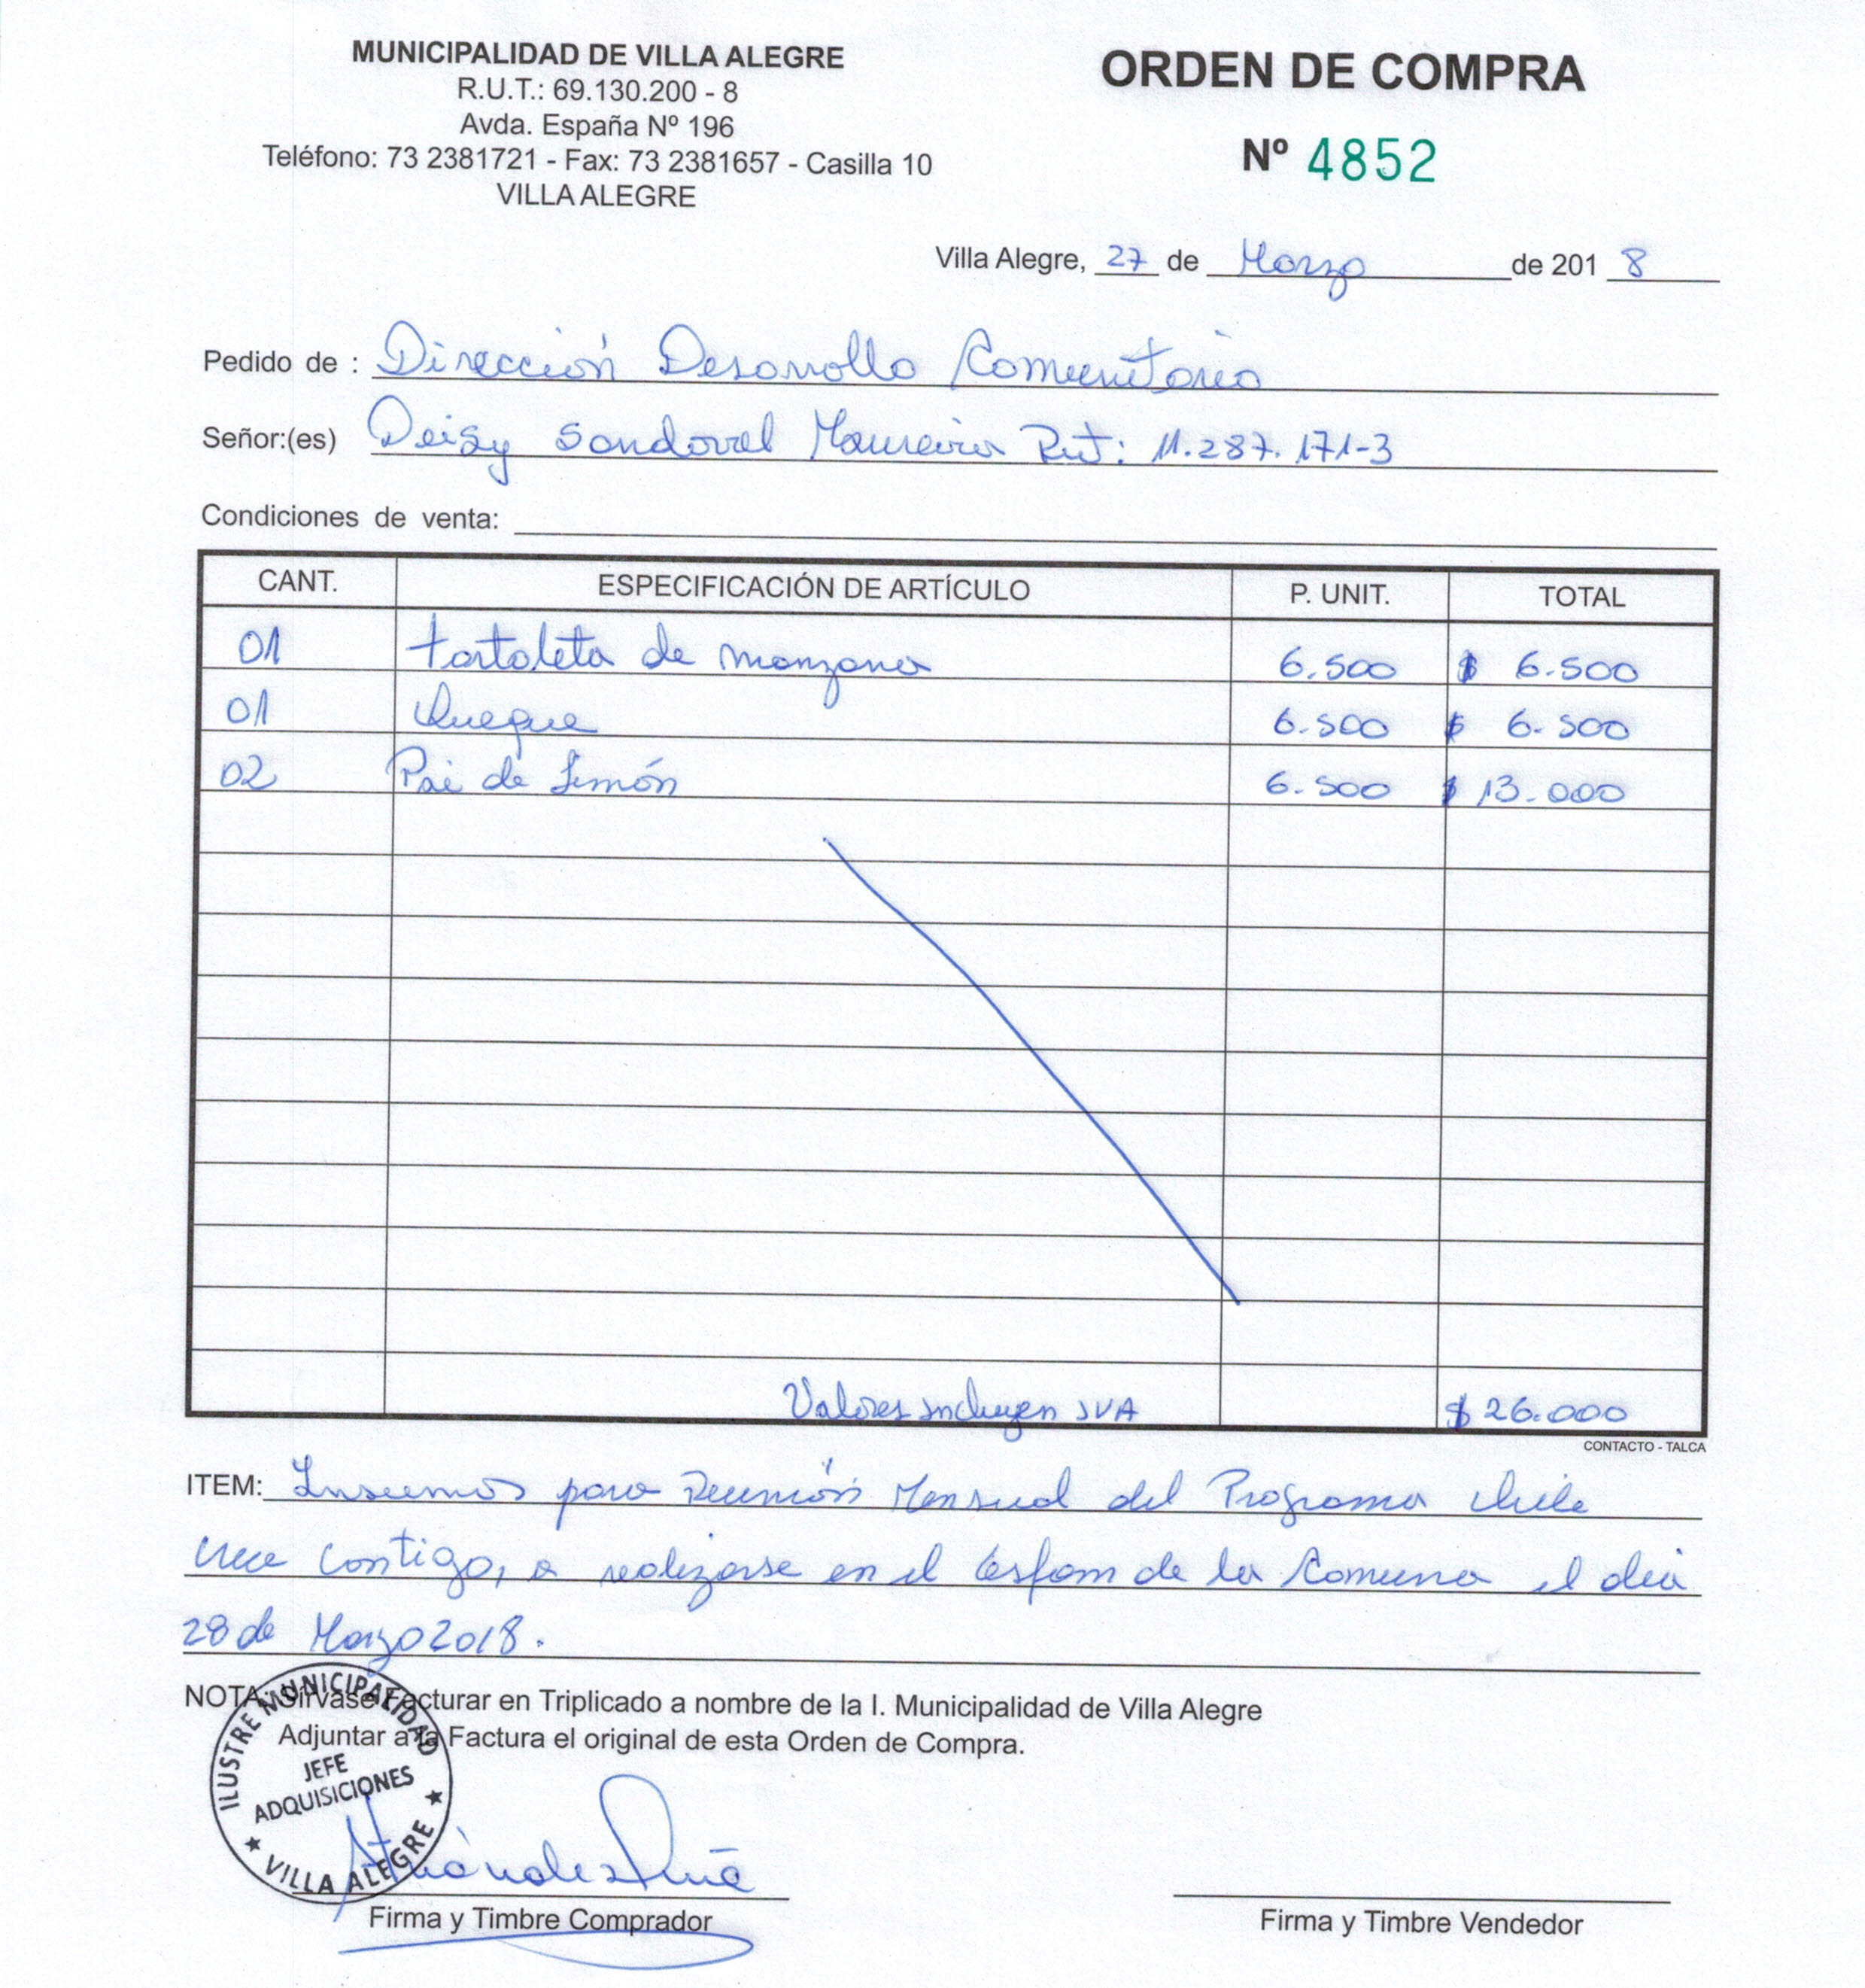 MUNICIPALIDAD DE VILLA ALEGRE
R.U.T.: 69.130.200 - 8
Avda. España Nº 196
Teléfono: 73 2381721 - Fax: 73 2381657 - Casilla 10
VILLA ALEGRE
ORDEN DE COMPRA
Nº 4852
Villa Alegre, 27 de Marzo de 2018
Pedido de : Dirección Desarrollo Comunitario
Señor:(es) Deisy Sandoval Maureira Rut: 11.287.171-3
Condiciones de venta:
CANT. ESPECIFICACIÓN DE ARTÍCULO P. UNIT. TOTAL
01 tartaleta de manzana 6.500 $ 6.500
01 Queque 6.500 $ 6.500
02 Pai de Limón 6.500 $ 13.000
Valores incluyen IVA $ 26.000
CONTACTO - TALCA
ITEM: Insumos para Reunión Mensual del Programa Chile
Crece Contigo, a realizarse en el Cesfam de la Comuna el día
28 de Marzo 2018.
NOTA: Sírvase Facturar en Triplicado a nombre de la I. Municipalidad de Villa Alegre
Adjuntar a la Factura el original de esta Orden de Compra.
ILUSTRE MUNICIPALIDAD
JEFE
ADQUISICIONES
★ VILLA ALEGRE ★
Firma y Timbre Comprador
Firma y Timbre Vendedor